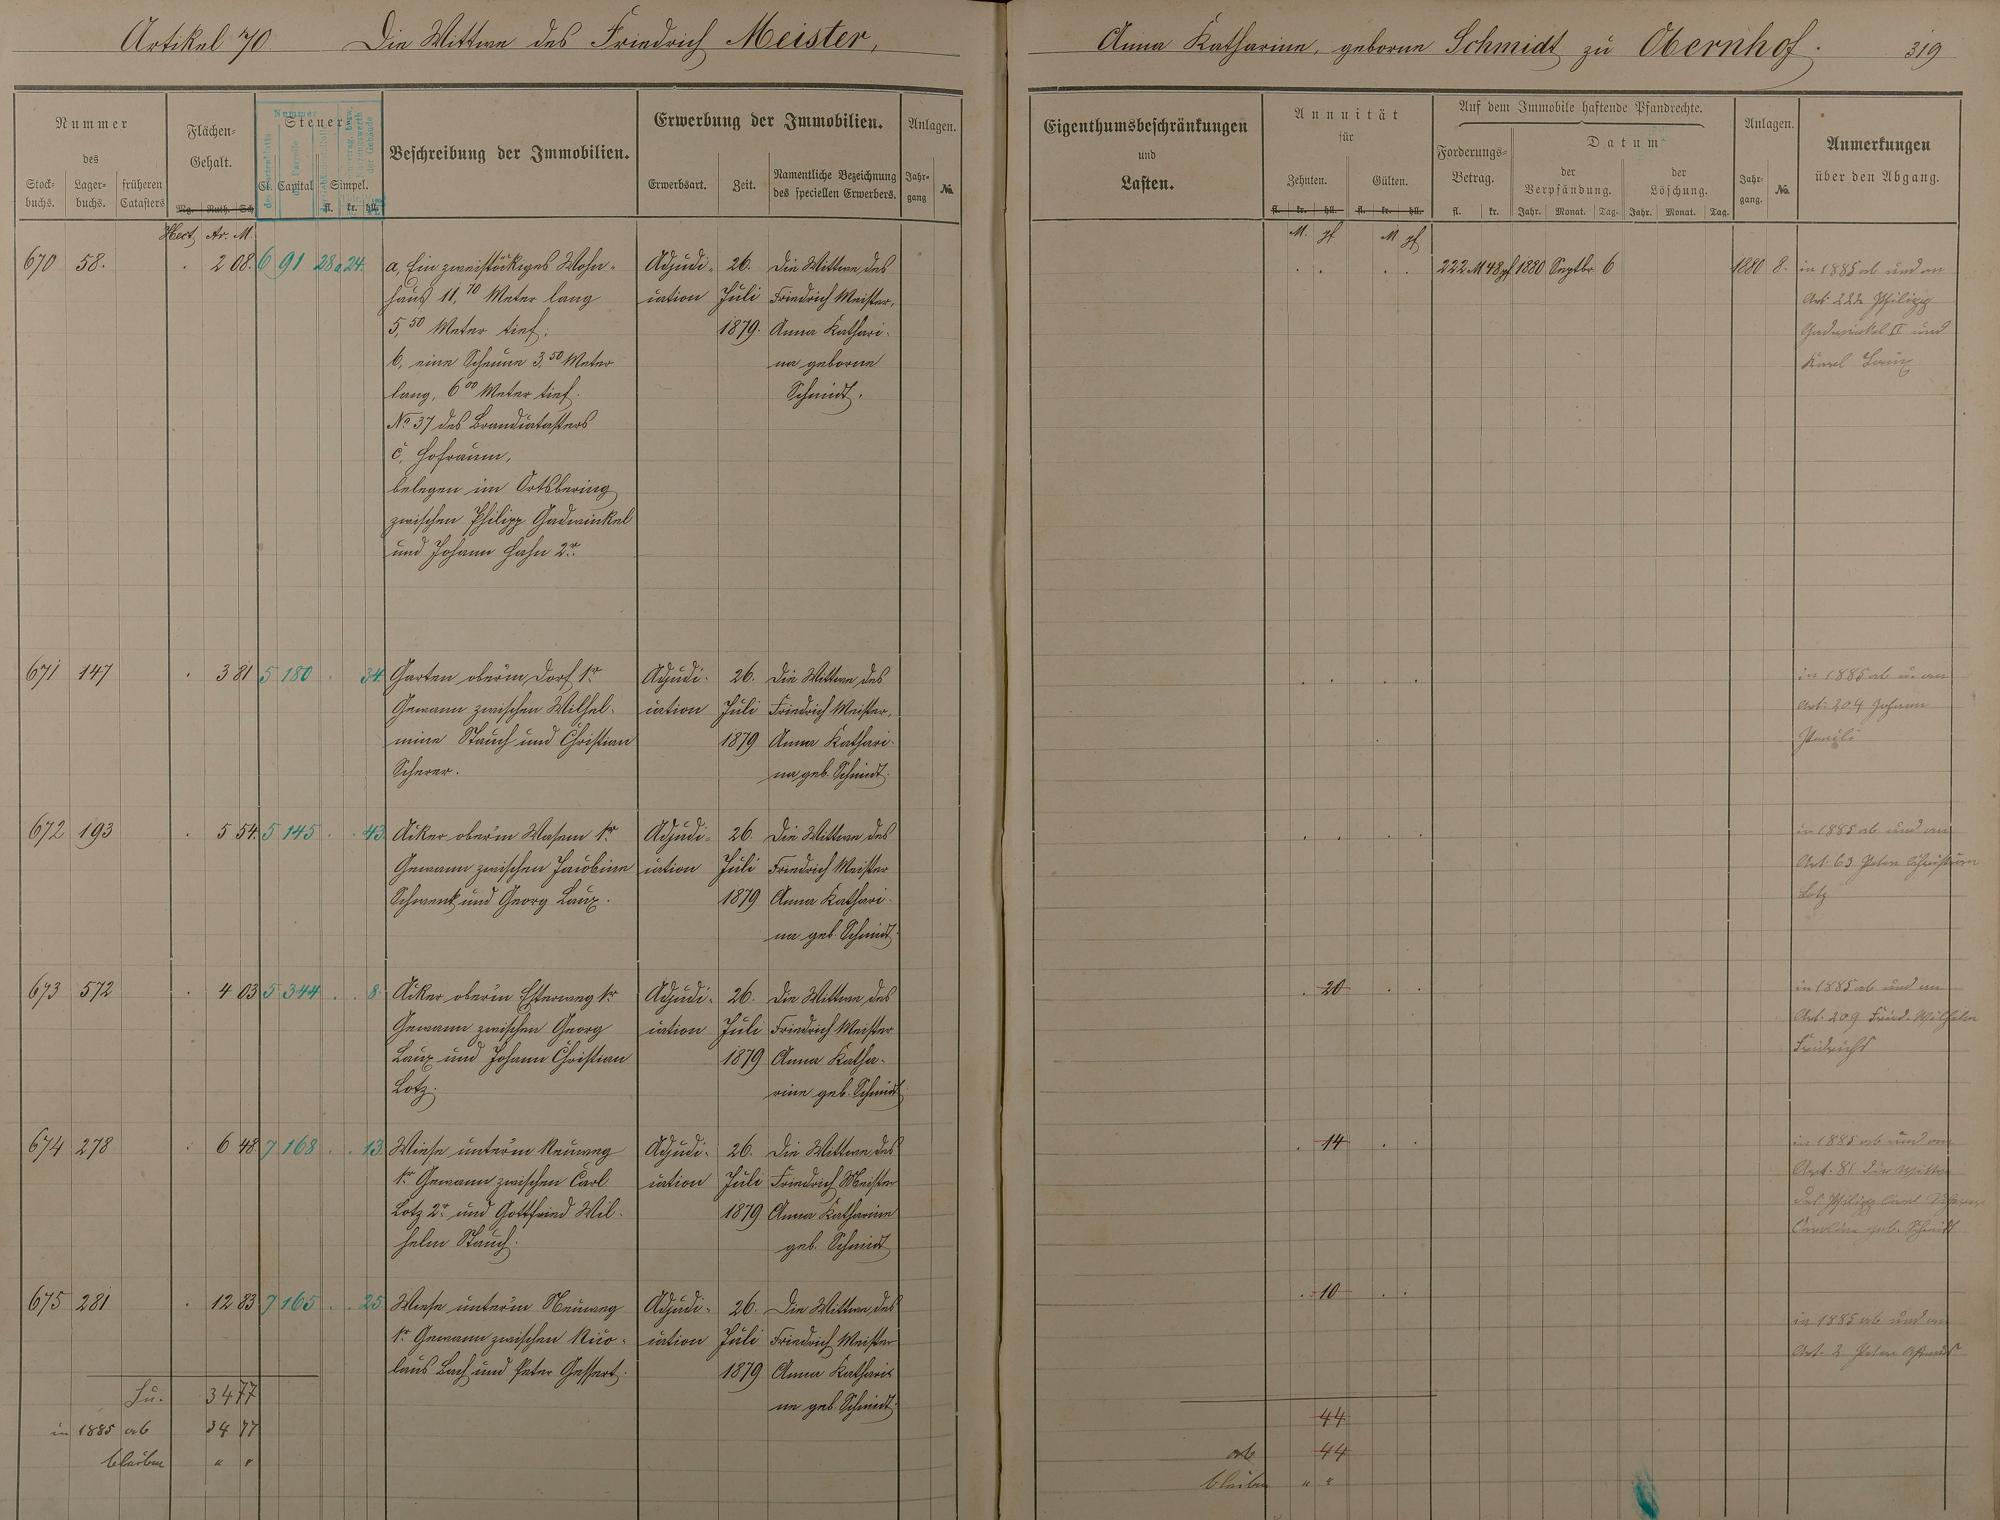 Artikel 70. Die Wittwe des Friedrich Meister,
Nummer
des
Stock-buchs. Lager-buchs. früheren Catasters
Flächen-Gehalt.
Mg. Ruth. Sch
Steuer
Cl. Capital Simpel.
fl. kr. hll.
Beschreibung der Immobilien.
Erwerbung der Immobilien.
Erwerbsart. Zeit. Namentliche Bezeichnung des speciellen Erwerbers.
Anlagen.
Jahr-gang No.
Hect Ar. M.
670 58. . 2 08. 6 91 28 a 24. a, Ein zweistöckiges Wohn- Adjudi- 26. Die Wittwe des
haus 11,70 Meter lang cation Juli Friedrich Meister,
5,50 Meter tief. 1879. Anna Kathari-
b, eine Scheune 3,50 Meter na geborne
lang, 6 00 Meter tief. Schmidt.
No 37 des Brandcatasters
c, Hofraum,
belegen im Ortsbering
zwischen Philipp Gadwinkel
und Johann Hahn 2r.
671 147 . 3 81 5 180 . . 34 Garten ober'm Dorf 1r Adjudi- 26. Die Wittwe des
Gewann zwischen Wilhel- cation Juli Friedrich Meister,
mine Stauch und Christian 1879 Anna Kathari-
Scherer. na geb. Schmidt.
672 193 . 5 54. 5 145 . . 43. Acker ober'm Wasem 1r Adjudi- 26. Die Wittwe des
Gewann zwischen Jacobine cation Juli Friedrich Meister
Schwenk und Georg Laux. 1879 Anna Kathari-
na geb. Schmidt.
673 572 . 4 03 5 344 . . 8. Acker ober'm Esterweg 1r Adjudi- 26. Die Wittwe des
Gewann zwischen Georg cation Juli Friedrich Meister
Laux und Johann Christian 1879 Anna Katha-
Lotz. rine geb. Schmidt.
674 278 . 6 48 7 168 . . 13. Wiese unter'm Neuweg Adjudi- 26. Die Wittwe des
1r Gewann zwischen Carl cation Juli Friedrich Meister
Lotz 2r und Gottfried Wil- 1879 Anna Katharine
helm Stauch. geb. Schmidt
675 281 . 12 83 7 165 . . 25. Wiese unter'm Neuweg Adjudi- 26. Die Wittwe des
1r Gewann zwischen Nico- cation Juli Friedrich Meister
laus Bach und Peter Gessert. 1879 Anna Kathari-
ne geb. Schmidt.
Su. 34 77
in 1885 ab 34 77
bleiben " "
Anna Katharine, geborne Schmidt zu Obernhof. 319
Eigenthumsbeschränkungen
und
Lasten.
Annuität
für
Zehnten. Gülten.
fl. kr. hll. fl. kr. hll.
Auf dem Immobile haftende Pfandrechte.
Forderungs-Betrag.
fl. kr.
Datum
der Verpfändung. der Löschung.
Jahr. Monat. Tag. Jahr. Monat. Tag.
Anlagen.
Jahr-gang. No.
Anmerkungen
über den Abgang.
M. pf M pf
222 M 48 pf 1880 Septbr 6 1880 8. in 1885 ab und an
Art. 222 Philipp
Gadwinkel II und
Karl Laux
in 1885 ab u. an
Art. 204 Johann
in 1885 ab und an
Art. 63 Peter Christian
Lotz
. 20 . . in 1885 ab und an
Art. 209 Fried. Wilhelm
Friedrichs
. 14 . . in 1885 ab und an
Art. 81 die Wittwe
des Philipp Carl
Caroline geb. Schmidt
. 10 . .
in 1885 ab und an
Art. 2 Peter
44
ab 44
bleiben " "